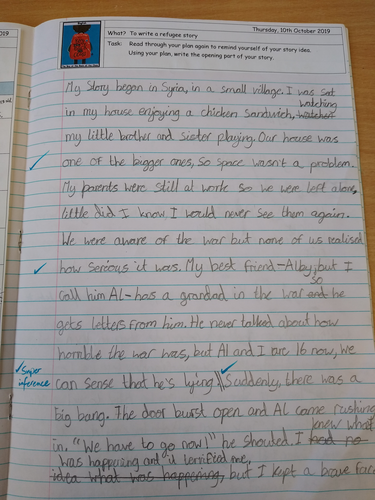 2019
Thursday, 10th October 2019
What? To write a refugee story
Task: Read through your plan again to remind yourself of your story ideas.
Using your plan, write the opening part of your story.
My story began in Syria, in a small village. I was sat
watching
in my house enjoying a chicken sandwich, watched
my little brother and sister playing. Our house was
one of the bigger ones, so space wasn't a problem.
My parents were still at work so we were left alone,
little did I know, I would never see them again.
We were aware of the war but none of us realised
how serious it was. My best friend-Alby, but I
so
call him AL-has a grandad in the war and he
gets letters from him. He never talked about how
horrible the war was, but Al and I are 16 now, we
Super
inference
can sense that he's lying.\\Suddenly, there was a
big bang. The door burst open and AL came rushing
knew what
in. "We have to go now!" he shouted. I had no
was happening and it terrified me,
idea what was happening, but I kept a brave face